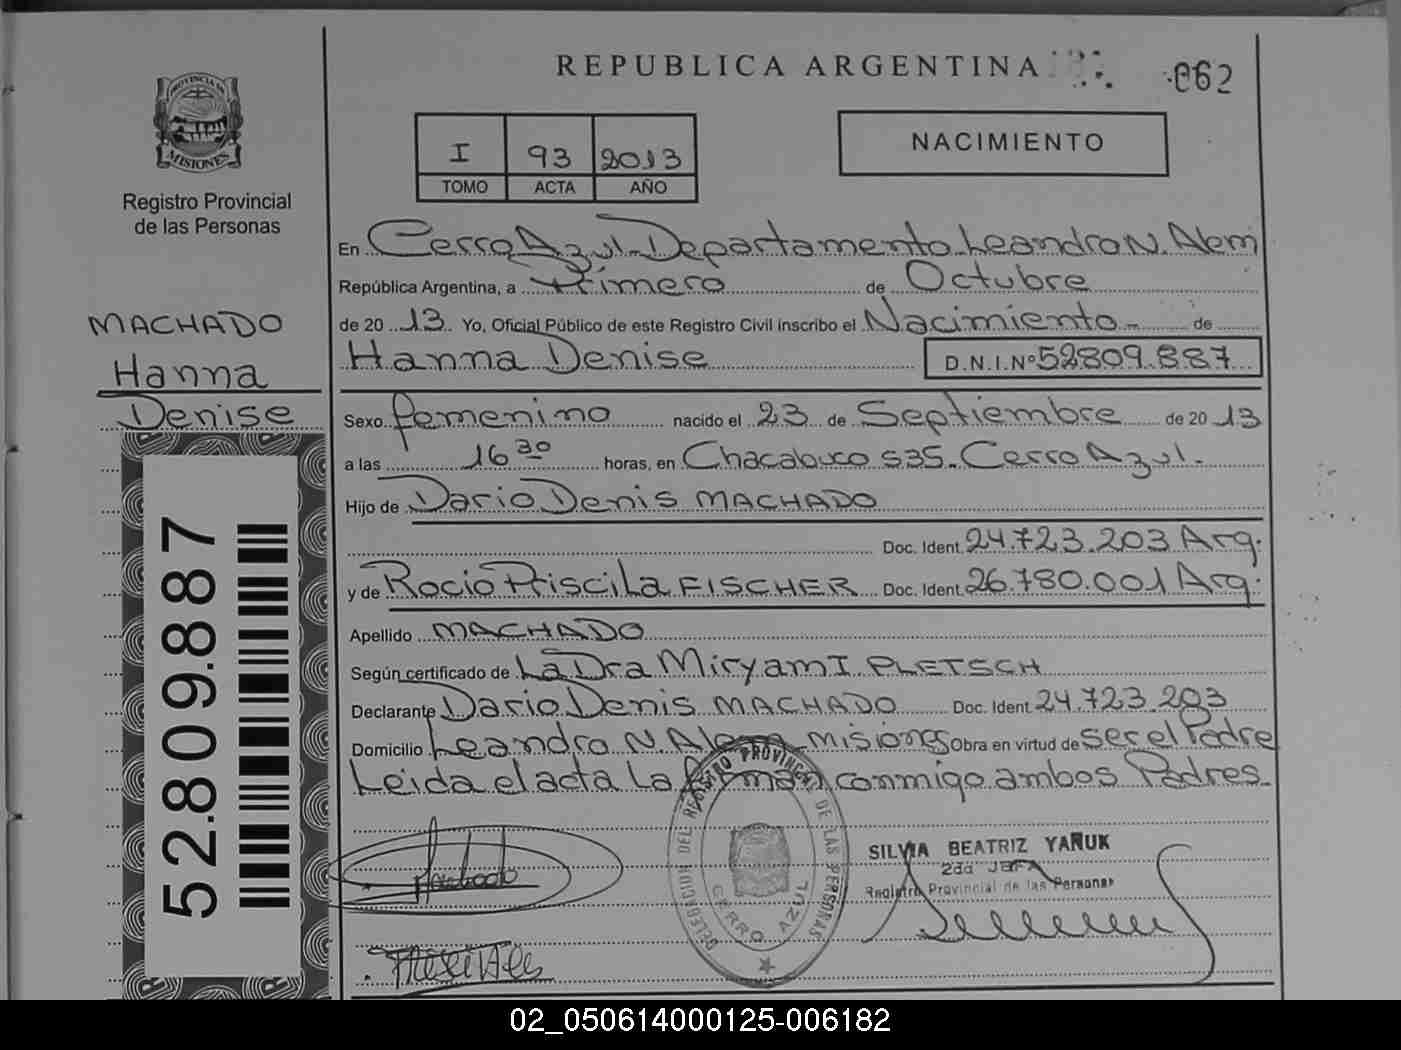 REPUBLICA ARGENTINA
062
PROVINCIA DE
MISIONES
Registro Provincial
de las Personas
I 93 2013
TOMO ACTA AÑO
NACIMIENTO
En Cerro Azul - Departamento Leandro N. Alem
República Argentina, a Primero de Octubre
de 20 13 Yo, Oficial Público de este Registro Civil inscribo el Nacimiento - de
Hanna Denise D.N.I.Nº 52809.887
MACHADO
Hanna
Denise
Sexo femenino nacido el 23 de Septiembre de 20 13
a las 16 30 horas, en Chacabuco 535. Cerro Azul.
Hijo de Dario Denis MACHADO
Doc. Ident. 24.723.203 Arg.
y de Rocio Priscila FISCHER Doc. Ident. 26.780.001 Arg.
Apellido MACHADO
Según certificado de La Dra Miryam I. PLETSCH
Declarante Dario Denis MACHADO Doc. Ident. 24.723.203
Domicilio Leandro N. Alem - Misiones Obra en virtud de ser el Padre
Leida el acta La firman conmigo ambos Padres.
52.809.887
DELEGACION DEL REGISTRO PROVINCIAL DE LAS PERSONAS
CERRO AZUL
SILVIA BEATRIZ YAÑUK
2da JEFA
Registro Provincial de las Personas
Machado
02_050614000125-006182